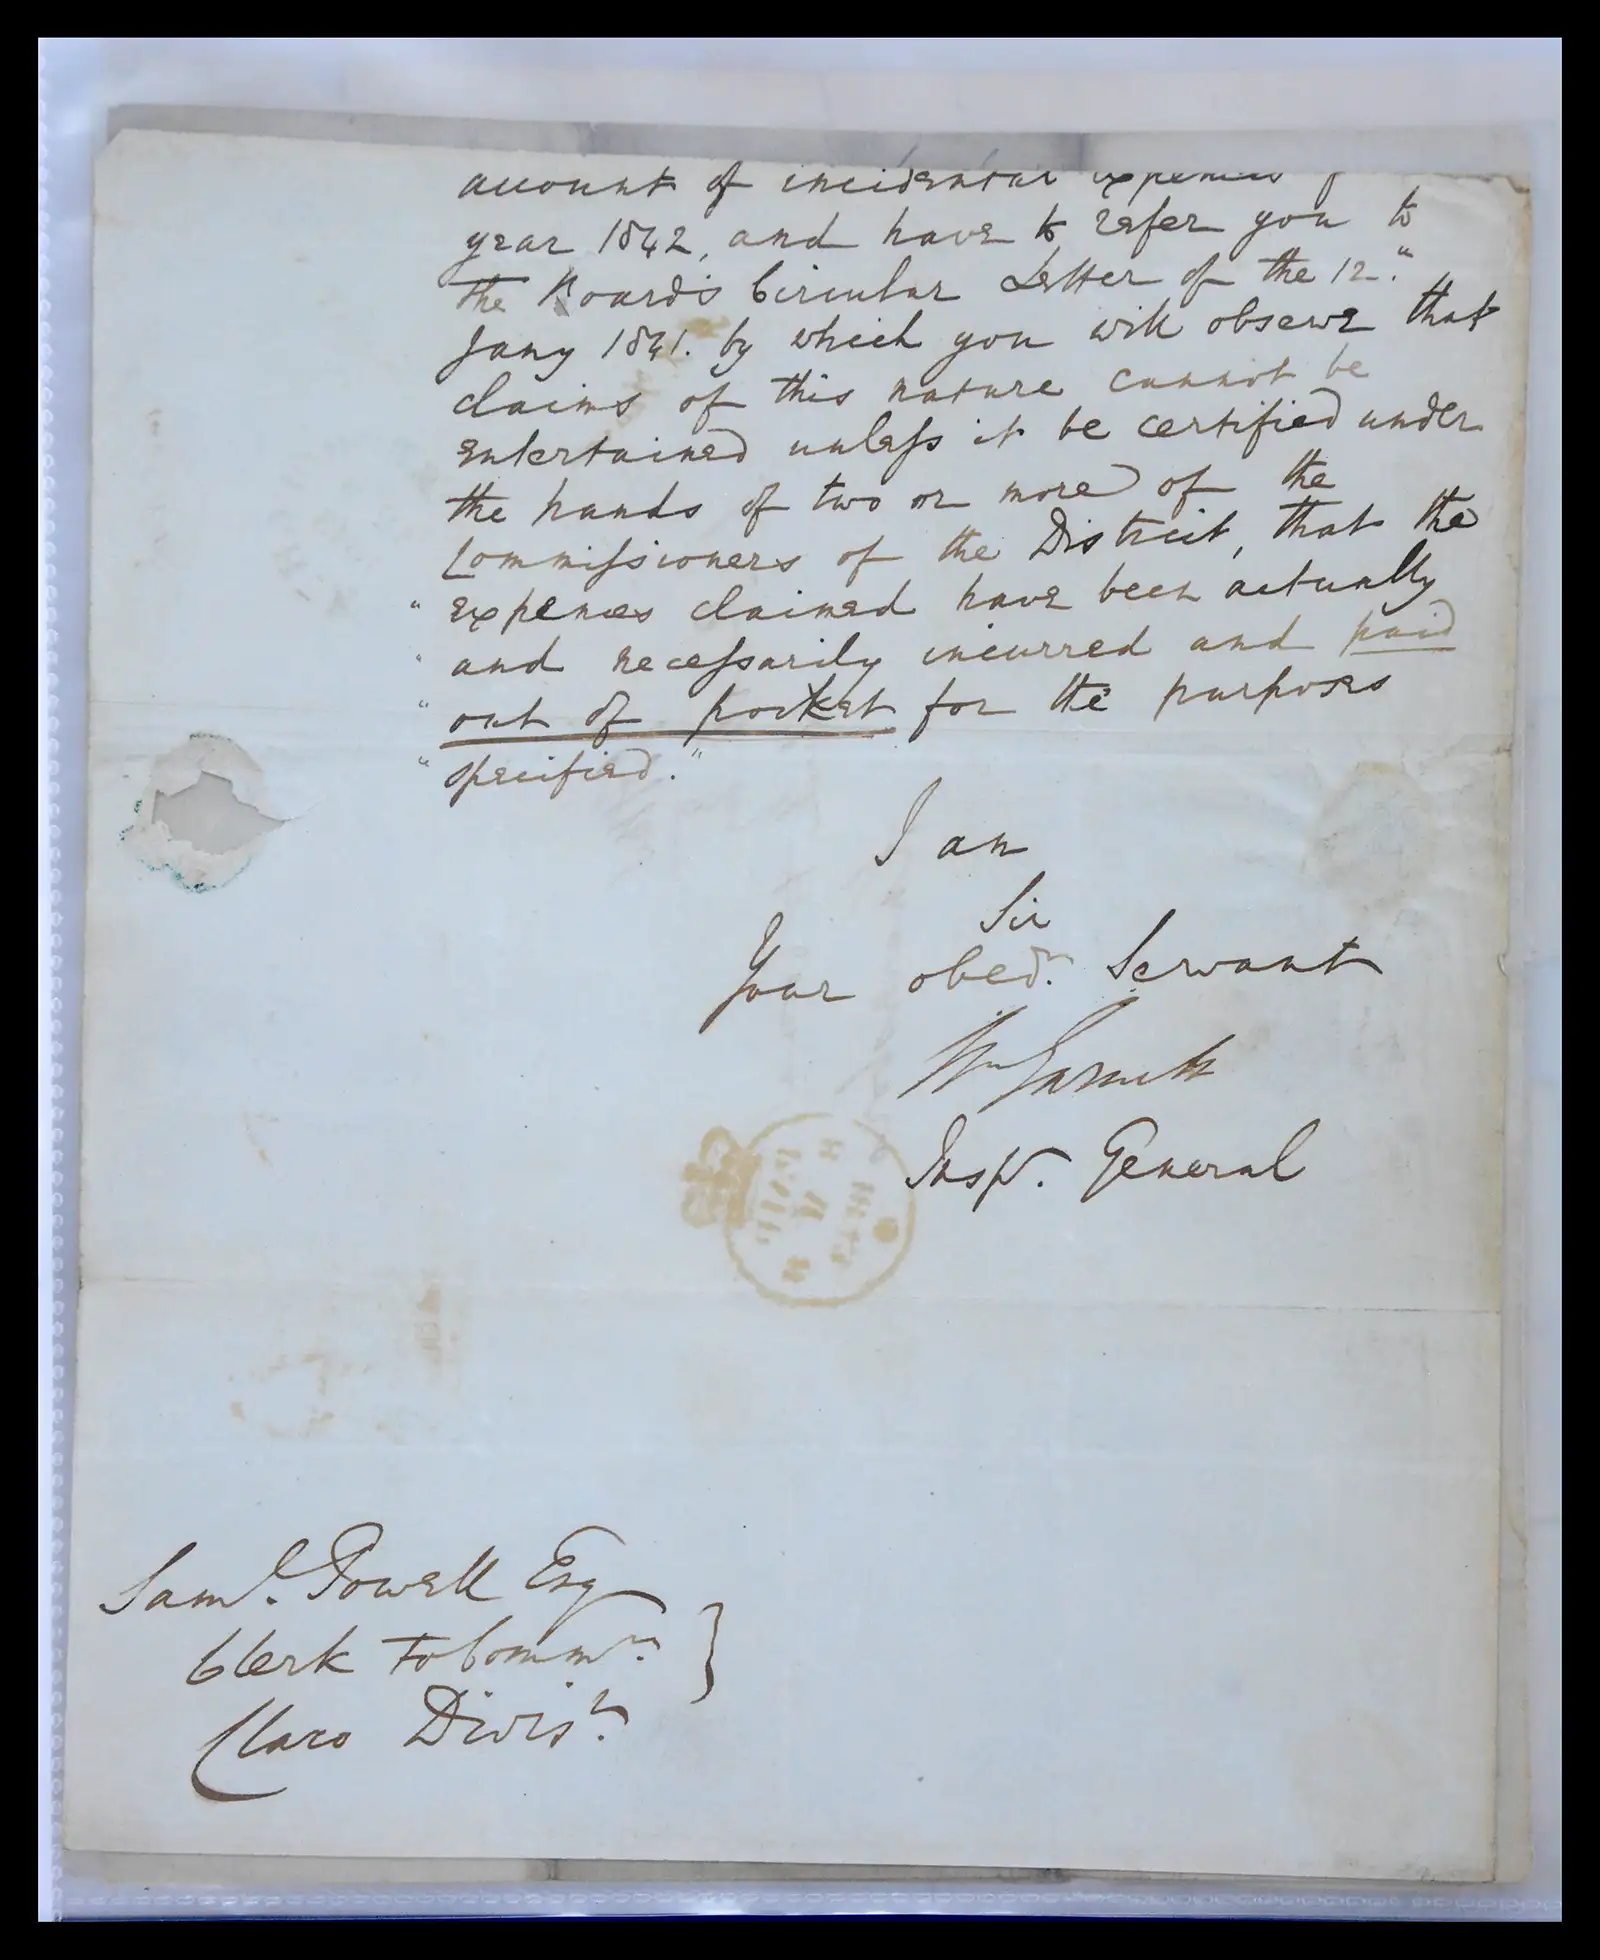 account of incidental expenses f
year 1842, and have to refer you to
the Board's Circular Letter of the 12."
Jany 1841. by which you will observe that
claims of this nature cannot be
entertained unless it be certified under
the hands of two or more of the
Commissioners of the District, that the
" expences claimed have been actually
" and necessarily incurred and paid
" out of pocket for the purposes
" specified."
I am
Sir
Your obedt. Servant
Wm Garnett
Inspr. General
Saml. Powell Esq
Clerk to Commrs.
Claro Divisn.